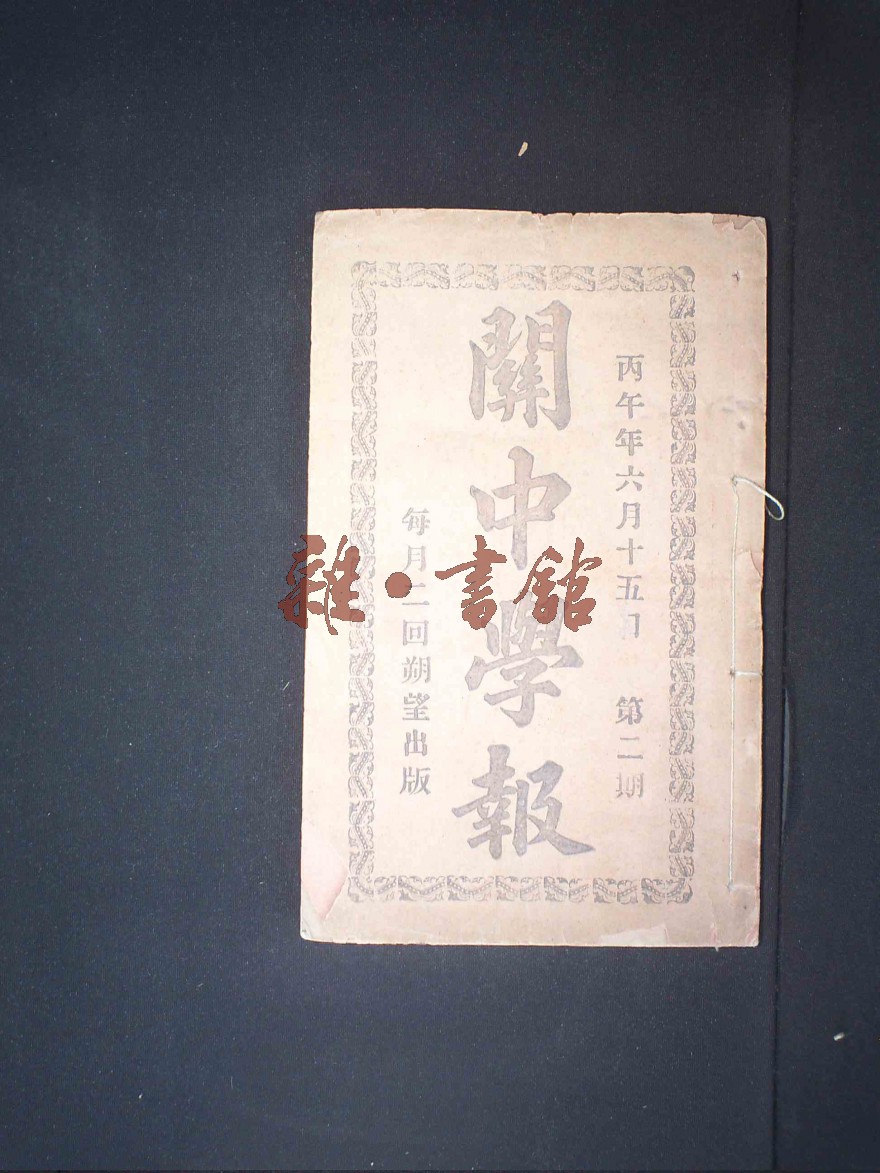 丙午年六月十五日 第二期
關中學報
每月二回朔望出版
雜·書館